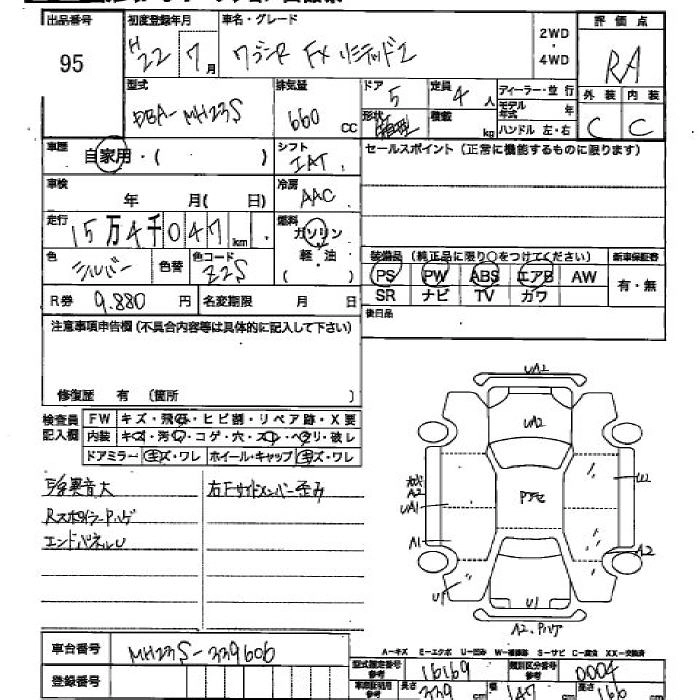 出品番号 初度登録年月 車名・グレード 評価点
95 H22 7月 ワゴンR FXリミテッドⅡ 2WD・4WD RA
型式 排気量 ドア 定員 ディーラー・並行 外装 内装
DBA-MH23S 660CC 5 4人 モデル年式 年 C C
形状 箱型 積載 kg ハンドル 左・右
車歴 自家用・( ) シフト IAT セールスポイント (正常に機能するものに限ります)
車検 年 月( 日) 冷房 AAC
走行 15万4千047km 燃料 ガソリン・軽油( )
色 シルバー 色替 色コード Z2S
装備品 (純正品に限り○をつけてください) 新車保証書
PS PW ABS エアB AW 有・無
SR ナビ TV カワ
R券 9.880円 名変期限 月 日 後日品
注意事項申告欄(不具合内容等は具体的に記入して下さい)
修復歴 有 (箇所 )
検査員記入欄 FW キズ・飛石・ヒビ割・リペア跡・X要
内装 キズ・汚れ・コゲ・穴・スレ・ヘタリ・破レ
ドアミラー キズ・ワレ ホイール・キャップ キズ・ワレ
異音大 右Fサイドメンバー歪み
RスポイラーPハゲ
エンドパネルU
UA2
UA2
A2
UA1
A1
Pアセ
U2
A2
U1
U1
A2.Pハゲ
A-キズ E-エクボ U-凹み W-補修跡 S-サビ C-腐食 XX-交換済
車台番号 MH23S-339606
型式指定番号 参考 16169 類別区分番号 参考 0004
登録番号 車庫証明用 参考 長さ 339 幅 147 高さ 166